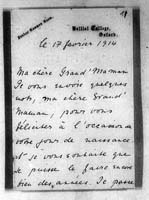 Balliol College,
Oxford.
le 17 février 1914
Ma chère Grand' Maman
Je vous envoie quelques
mots, ma chère Grand'
Maman, pour vous
féliciter à l'occasion de
votre jour de naissance
et je vous souhaite que
je puisse le faire encore
bien des années. Je